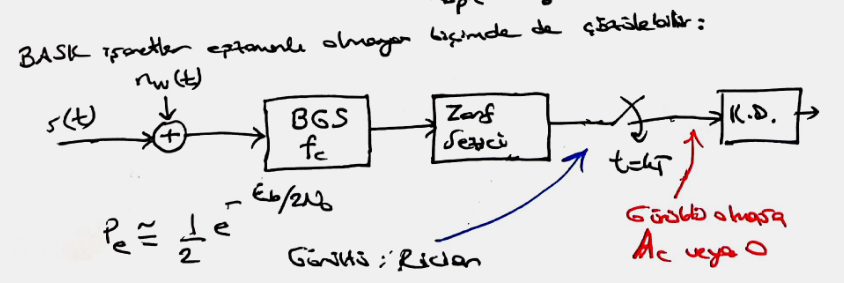 BASK işaretler eşzamanlı olmayan biçimde de çözülebilir:
n_w(t)
s(t)
+
BGS
f_c
Zarf
Sezici
t=kT
K.D.
P_e ≅ 1/2 e^{-E_b/2N_0}
Gürültü: Rician
Gürültü olmasa
A_c veya 0